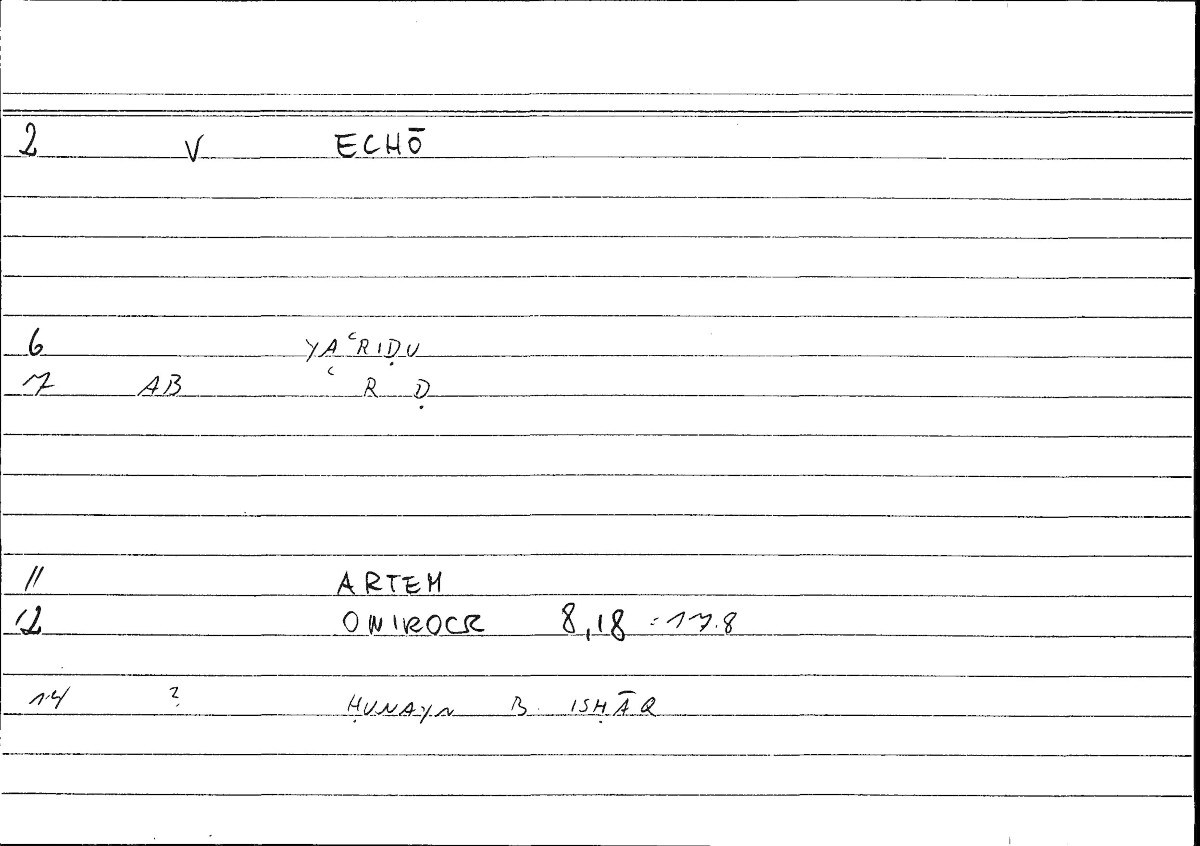 2 V ECHŌ
6 YAʿRIḌU
7 AB ʿ R Ḍ
11 ARTEM
12 ONIROCR 8,18 = 17.8
14 ? ḤUNAYN B. ISḤĀQ